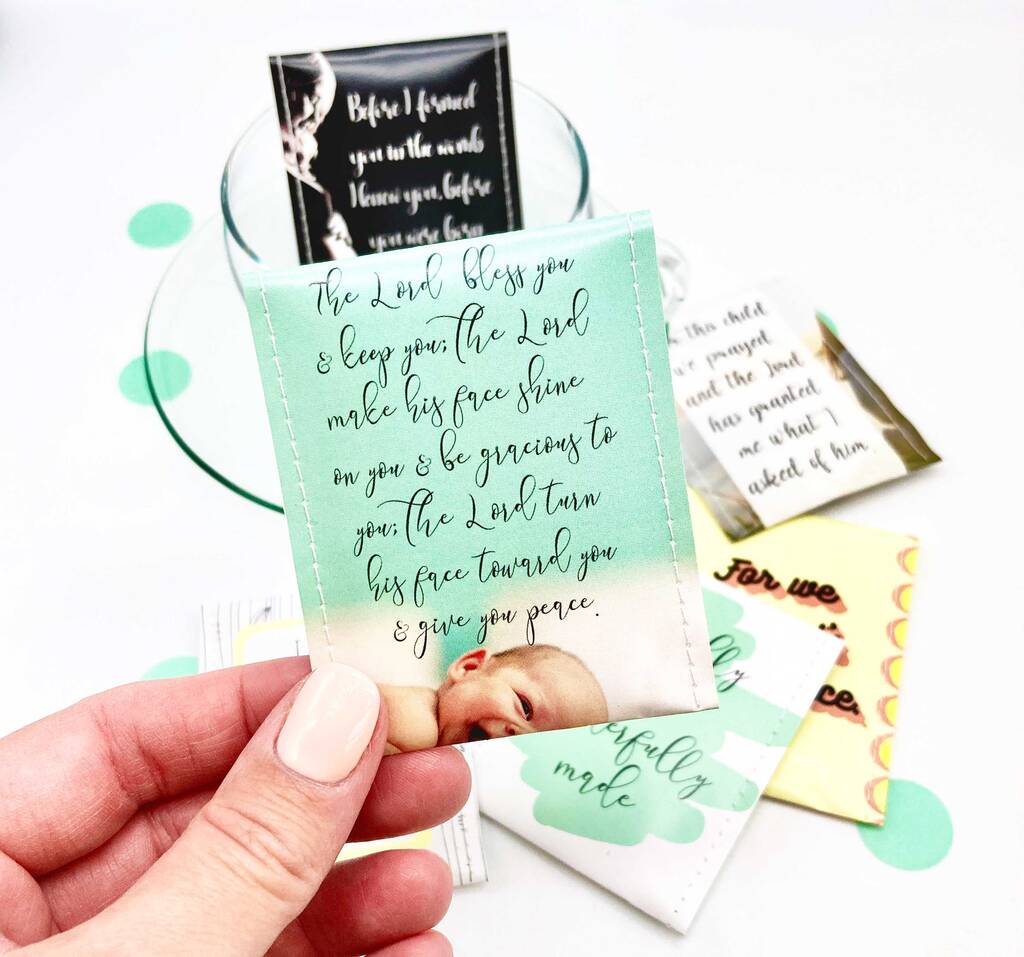 Before I formed
you in the womb
I knew you, before
you were born
The Lord bless you
& keep you; The Lord
make his face shine
on you & be gracious to
you; The Lord turn
his face toward you
& give you peace.
this child
we prayed
and the Lord
has granted
me what I
asked of him.
For we
made